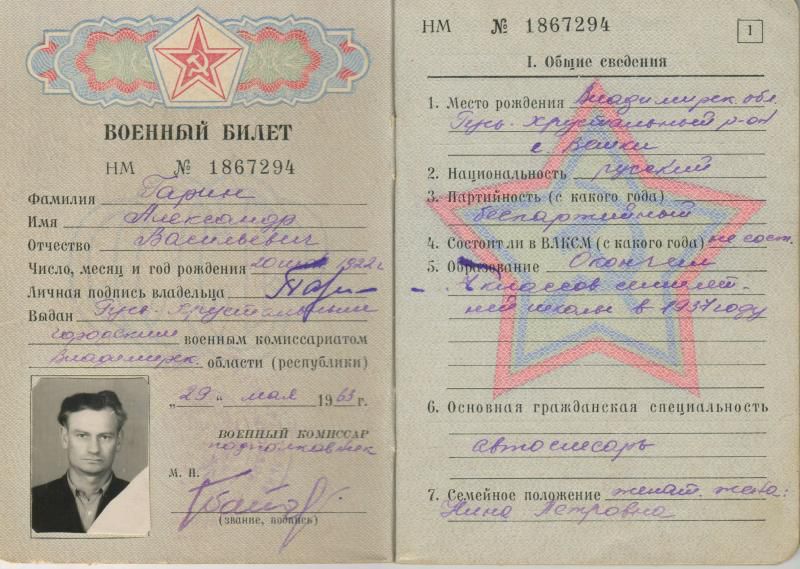 ВОЕННЫЙ БИЛЕТ
НМ № 1867294
Фамилия Гарин
Имя Александр
Отчество Васильевич
Число, месяц и год рождения 20 1922 г
Личная подпись владельца
Выдан Гусь-Хрустальным
городским военным комиссариатом
Владимирск. области (республики)
„29“ мая 1963 г.
ВОЕННЫЙ КОМИССАР
подполковник
М. П.
(звание, подпись)
НМ № 1867294
1
I. Общие сведения
1. Место рождения Владимирск. обл.
Гусь-Хрустальный р-он
с.
2. Национальность русский
3. Партийность (с какого года)
беспартийный
4. Состоит ли в ВЛКСМ (с какого года) не сост.
5. Образование Окончил
7 классов семилет-
ней школы в 1937 году
6. Основная гражданская специальность
автослесарь
7. Семейное положение женат. жена:
Нина Петровна